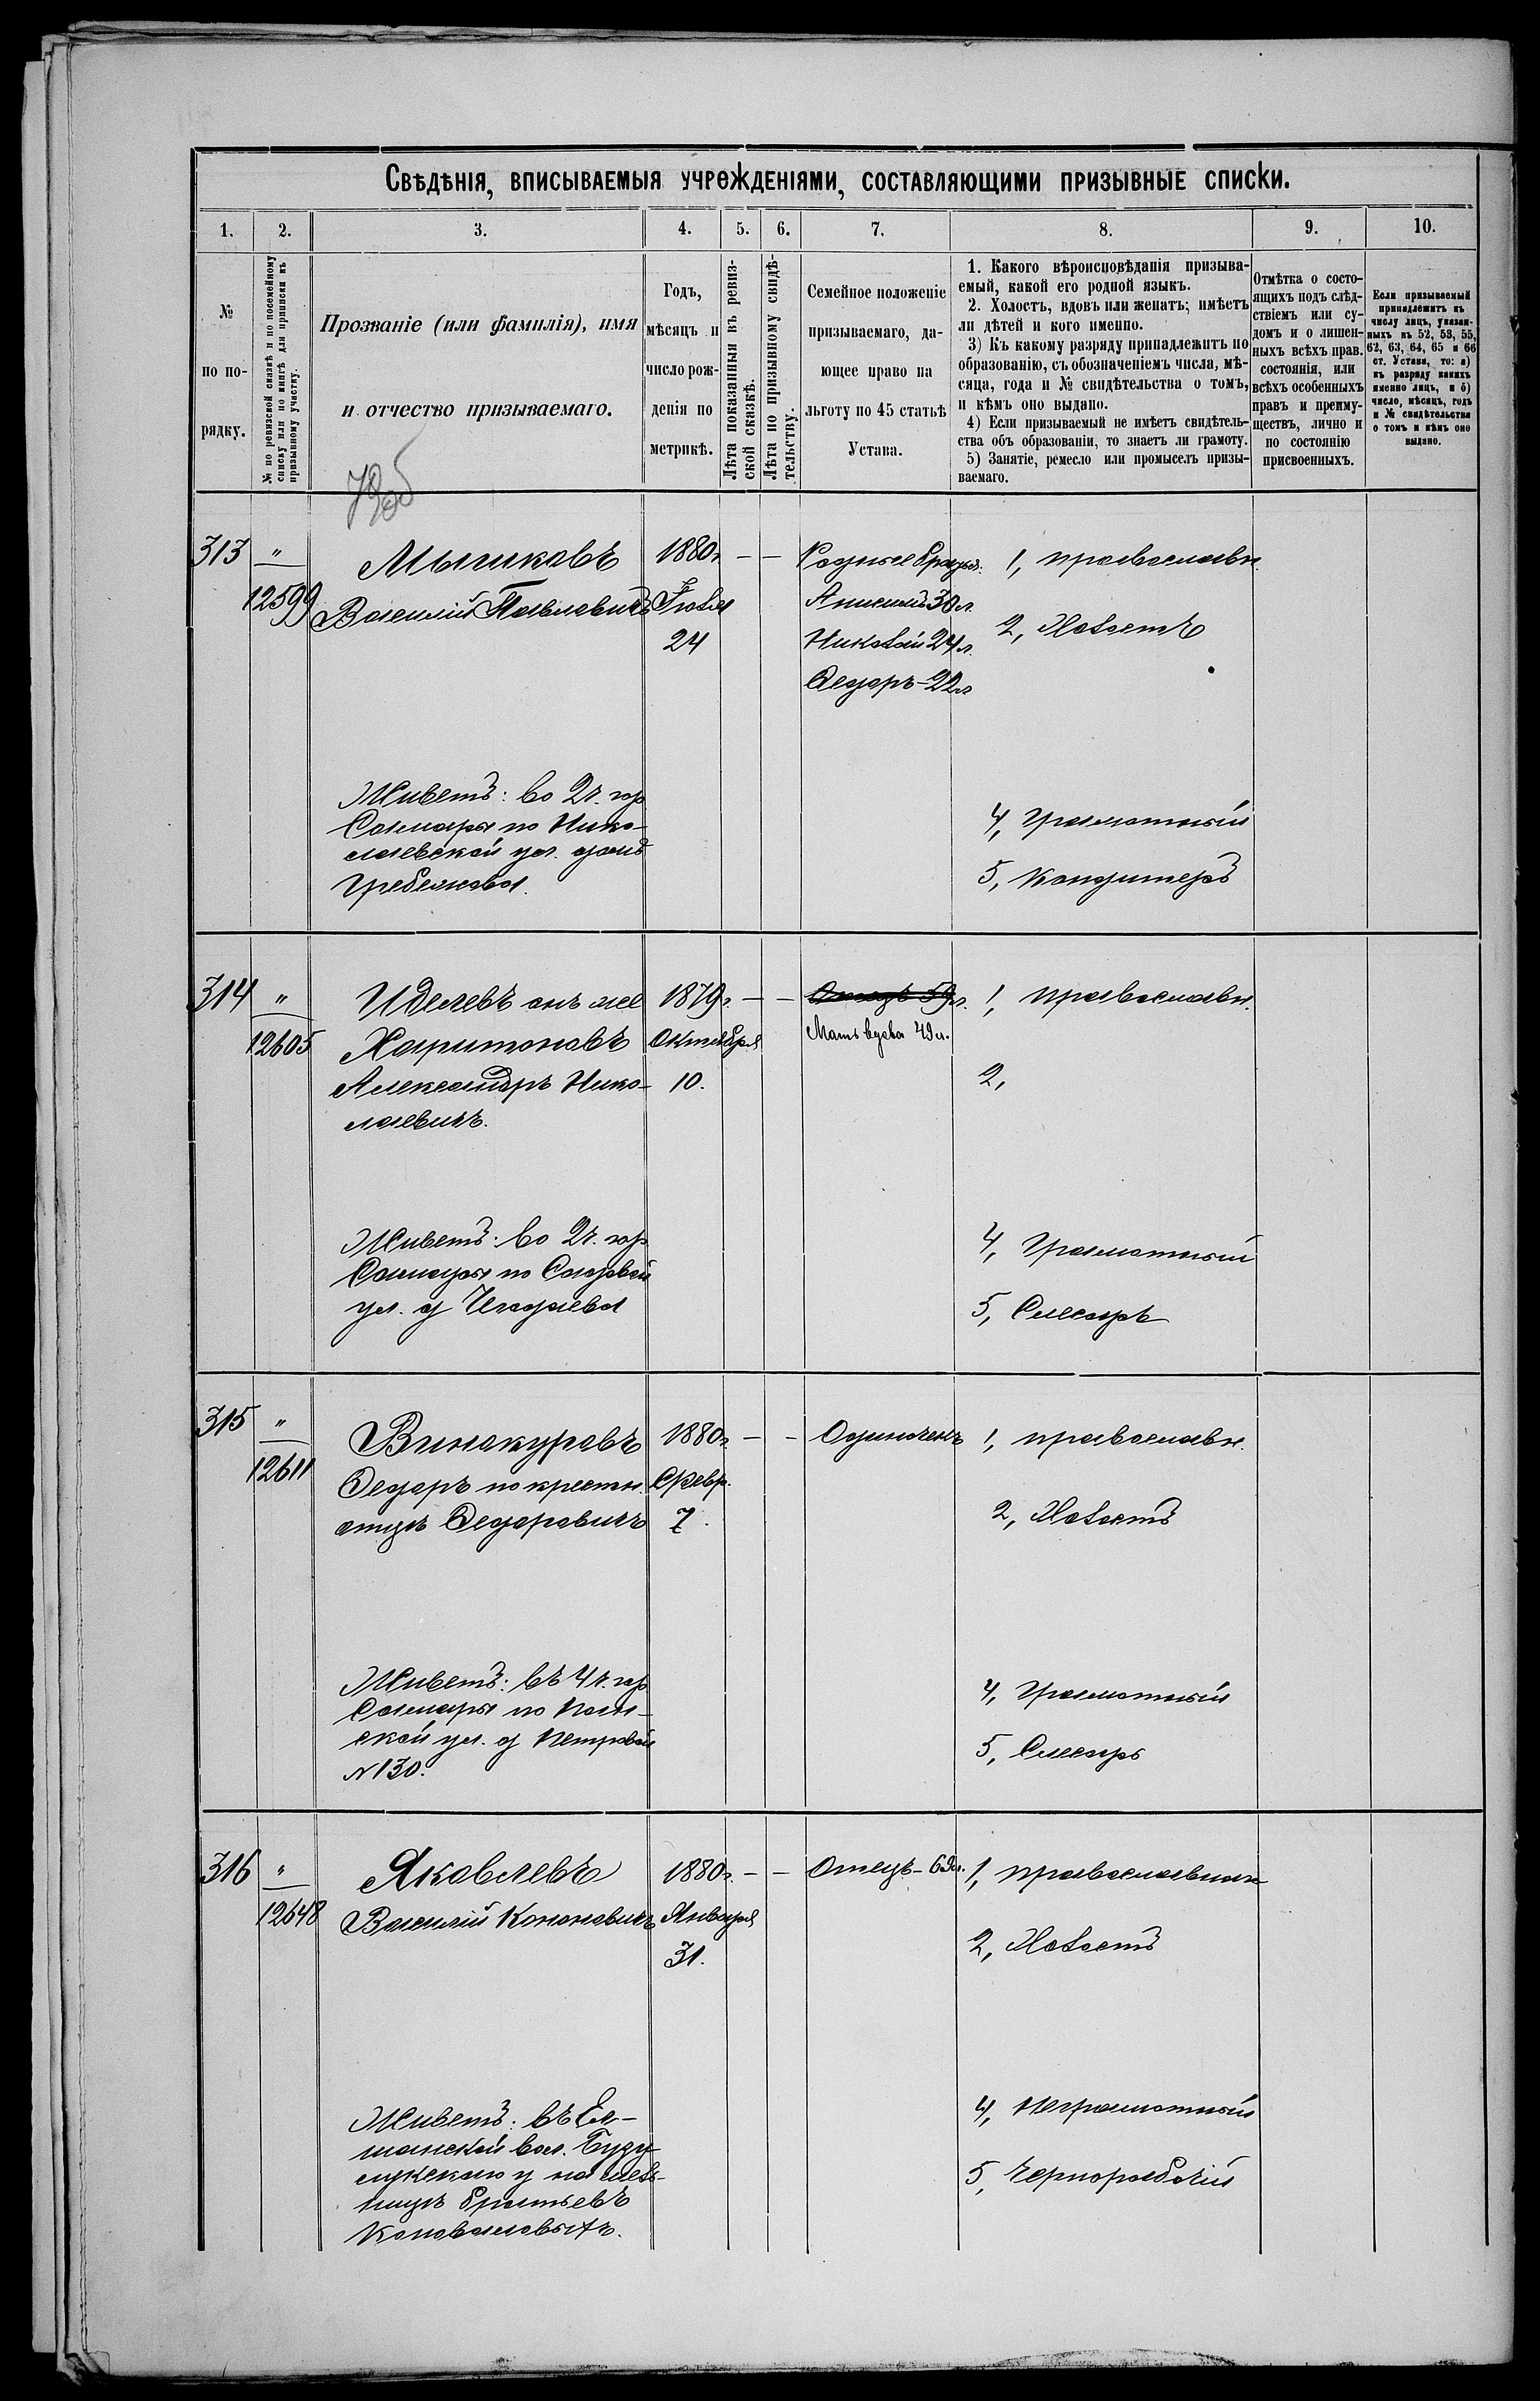 Свѣдѣнія, вписываемыя учрежденіями, составляющими призывные списки.
1. 2. 3. 4. 5. 6. 7. 8. 9. 10.
№
по по-
рядку.
№ по ревизской сказкѣ и по посемейному
списку или по книгѣ для приписки къ
призывному участку.
Прозваніе (или фамилія), имя
и отчество призываемаго.
Годъ,
мѣсяцъ и
число рож-
денія по
метрикѣ.
Лѣта показанныя въ ревиз-
ской сказкѣ.
Лѣта по призывному свидѣ-
тельству.
Семейное положеніе
призываемаго, да-
ющее право на
льготу по 45 статьѣ
Устава.
1. Какого вѣроисповѣданія призыва-
емый, какой его родной языкъ.
2. Холостъ, вдовъ или женатъ; имѣетъ
ли дѣтей и кого именно.
3) Къ какому разряду принадлежитъ по
образованію, съ обозначеніемъ числа, мѣ-
сяца, года и № свидѣтельства о томъ,
и кѣмъ оно выдано.
4) Если призываемый не имѣетъ свидѣтель-
ства объ образованіи, то знаетъ ли грамоту.
5) Занятіе, ремесло или промыселъ призы-
ваемаго.
Отмѣтка о состо-
ящихъ подъ слѣд-
ствіемъ или су-
домъ и о лишен-
ныхъ всѣхъ прав.
состоянія, или
всѣхъ особенныхъ
правъ и преиму-
ществъ, лично и
по состоянію
присвоенныхъ.
Если призываемый
принадлежитъ къ
числу лицъ, указан-
ныхъ въ 52, 53, 55,
62, 63, 64, 65 и 66
ст. Устава, то: а)
къ разряду какихъ
именно лицъ, и б)
число, мѣсяцъ, годъ
и № свидѣтельства
о томъ и кѣмъ оно
выдано.
313 " Мышковъ 1880г. — — Родные братья: 1, православн.
12599 Василій Павловичъ Іюля Анисимъ 30 л.
24 Николай 24 л. 2, Холостъ
Ѳедоръ - 22 л
Живетъ: во 2 ч. гор
Самары по Нико-
лаевской ул. домъ
Гребежнова.
4, Грамотный
5, Кондитеръ
314 " Иделевъ онъ же 1879г. — — Отецъ 59 л. 1, православн.
12605 Харитоновъ Октября Мать вдова 49 л.
Александръ Нико- 10. 2,
лаевичъ.
Живетъ: во 2 ч. гор
Самары по Садовой
ул. д
4, Грамотный
5, Слесарь
315 " Винокуровъ 1880г. — — Одиночекъ 1, православн.
12611 Ѳедоръ по крестн. Февр.
отцу Ѳедоровичъ 7. 2, Холостъ
Живетъ: въ 4 ч. гор
Самары по Ильин-
ской ул. д Петровой
№ 130.
4, Грамотный
5, Слесарь
316 " Яковлевъ 1880г. — — Отецъ - 69 л. 1, православный
12648 Василій Кононовичъ Января
31. 2, Холостъ
Живетъ: въ Ел-
шанской вол. Бузу-
лукскаго у на мель-
ницѣ братьевъ
Коноваловыхъ.
4, Неграмотный
5, Чернорабочій